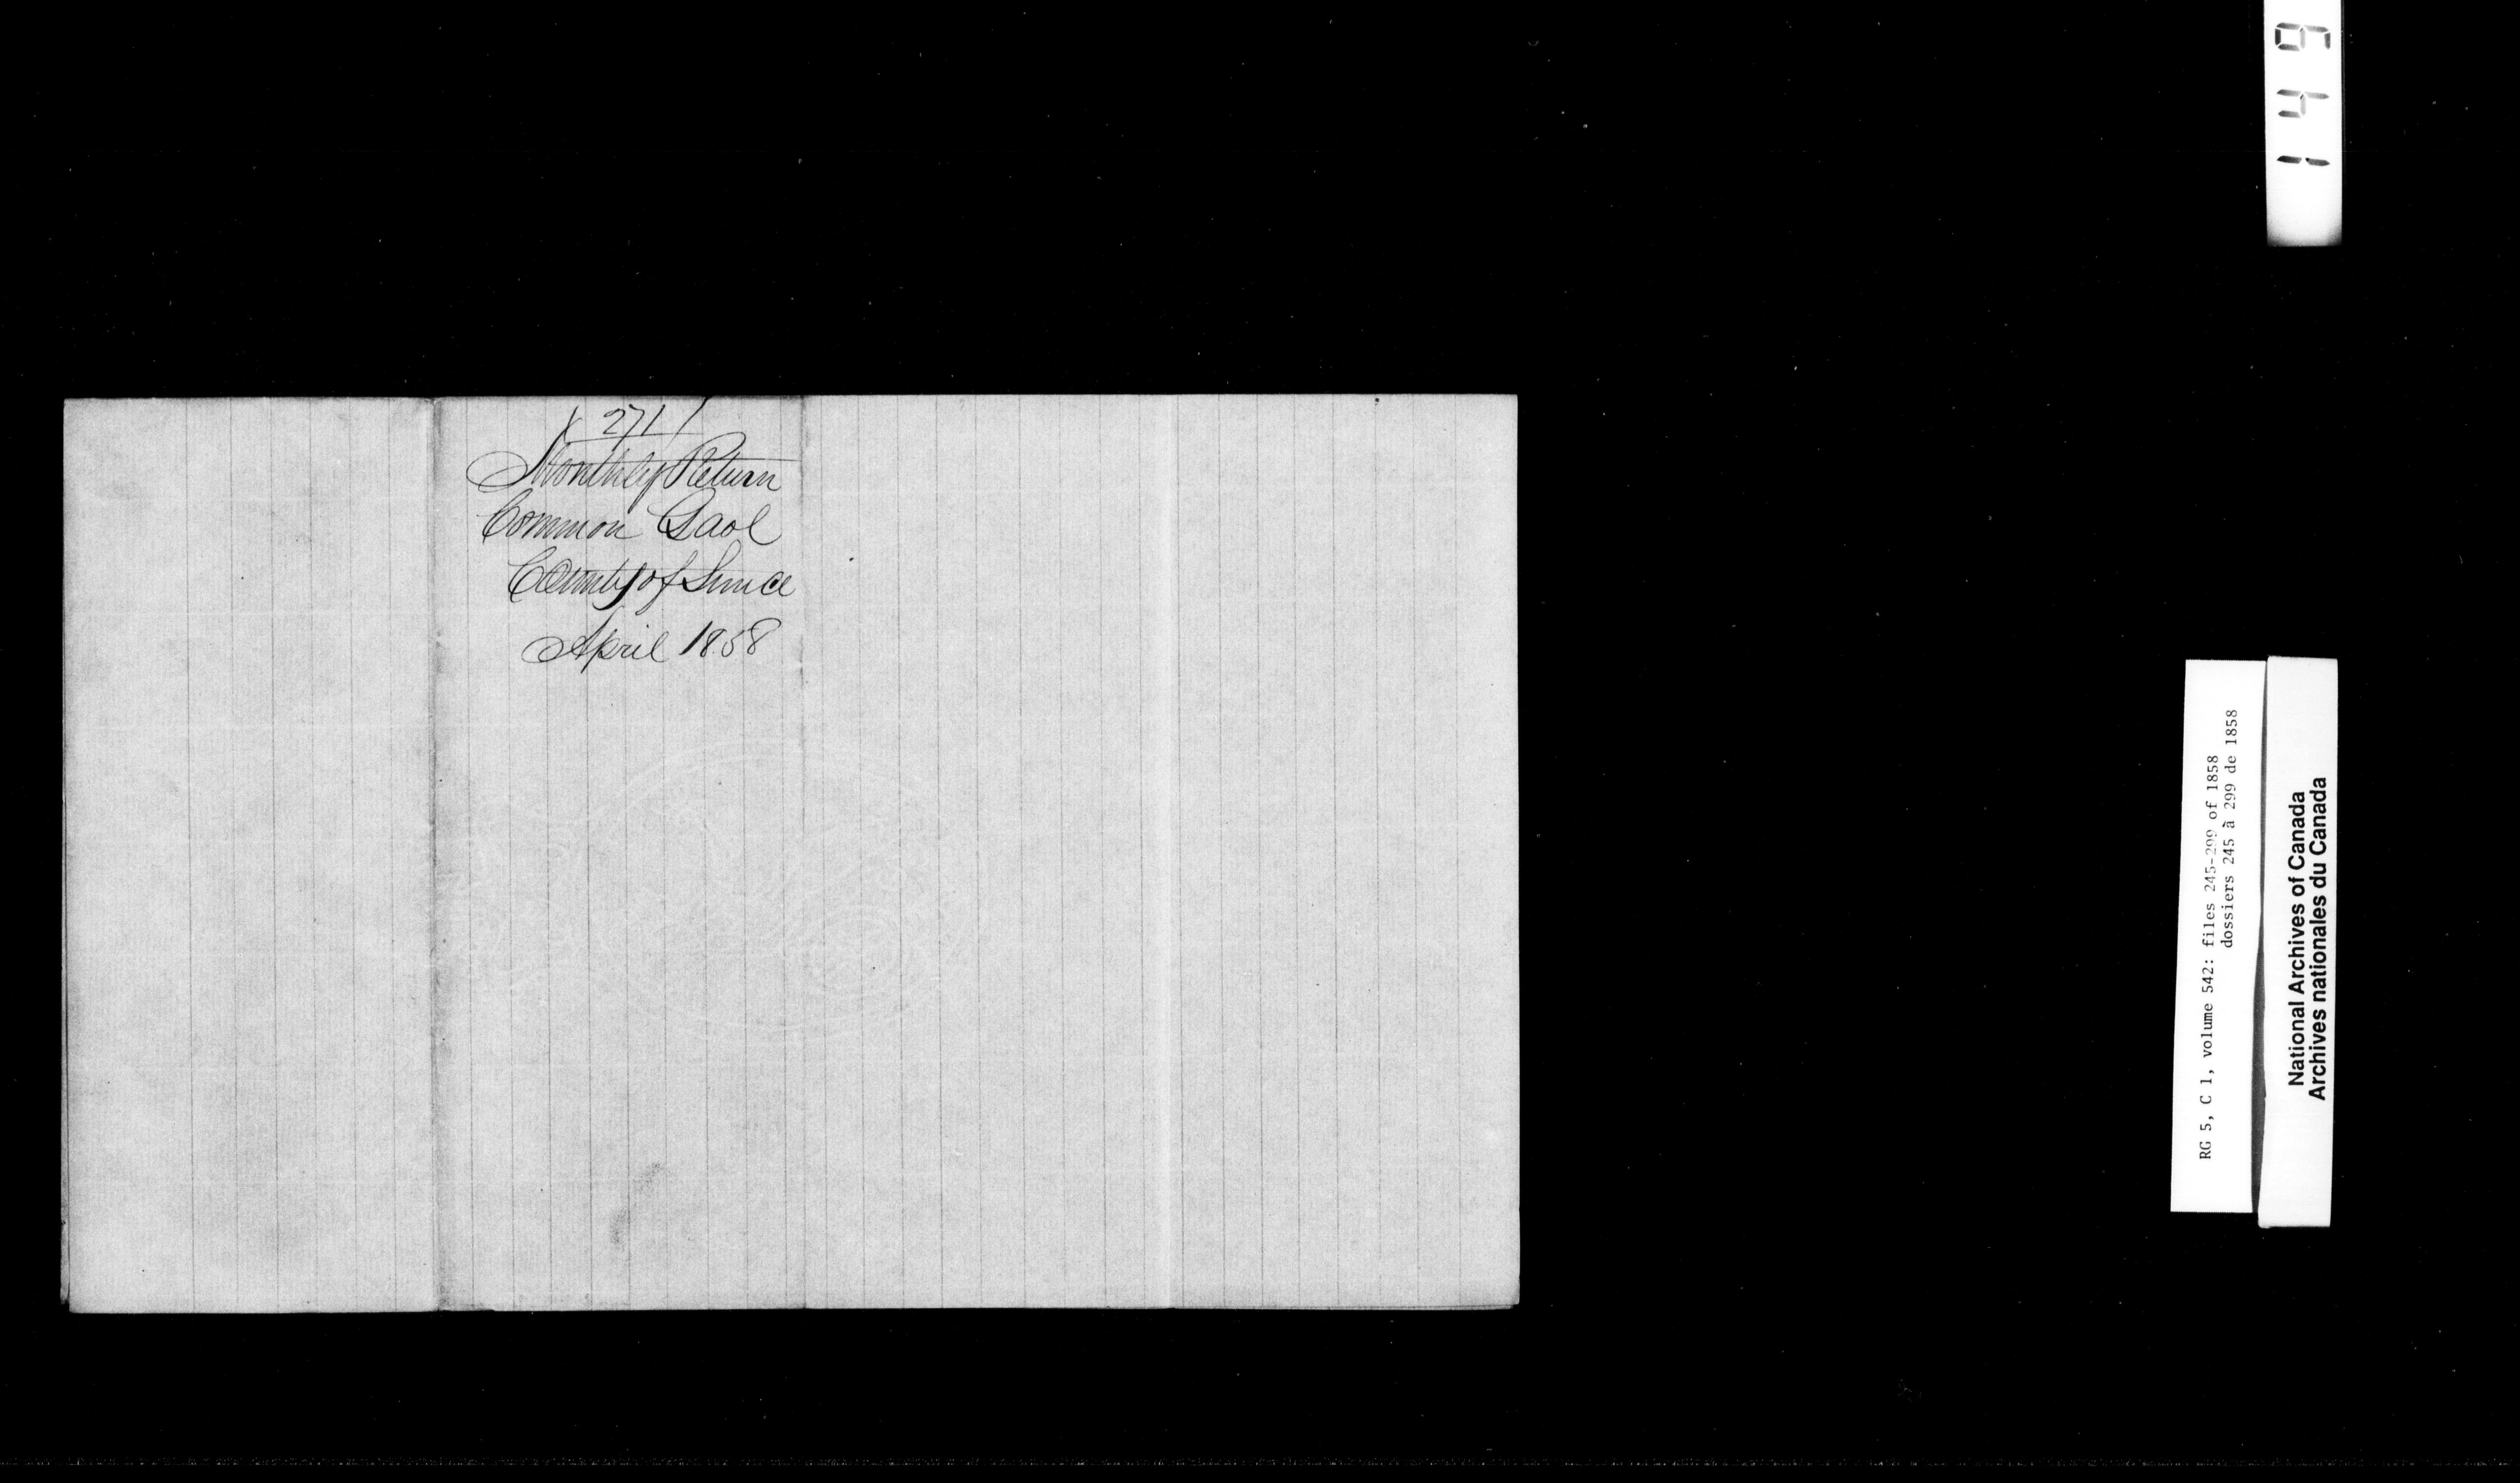 271
Monthly Return
Common Gaol
County of Simcoe
April 1858
RG 5, C 1, volume 542: files 245-299 of 1858
dossiers 245 à 299 de 1858
National Archives of Canada
Archives nationales du Canada